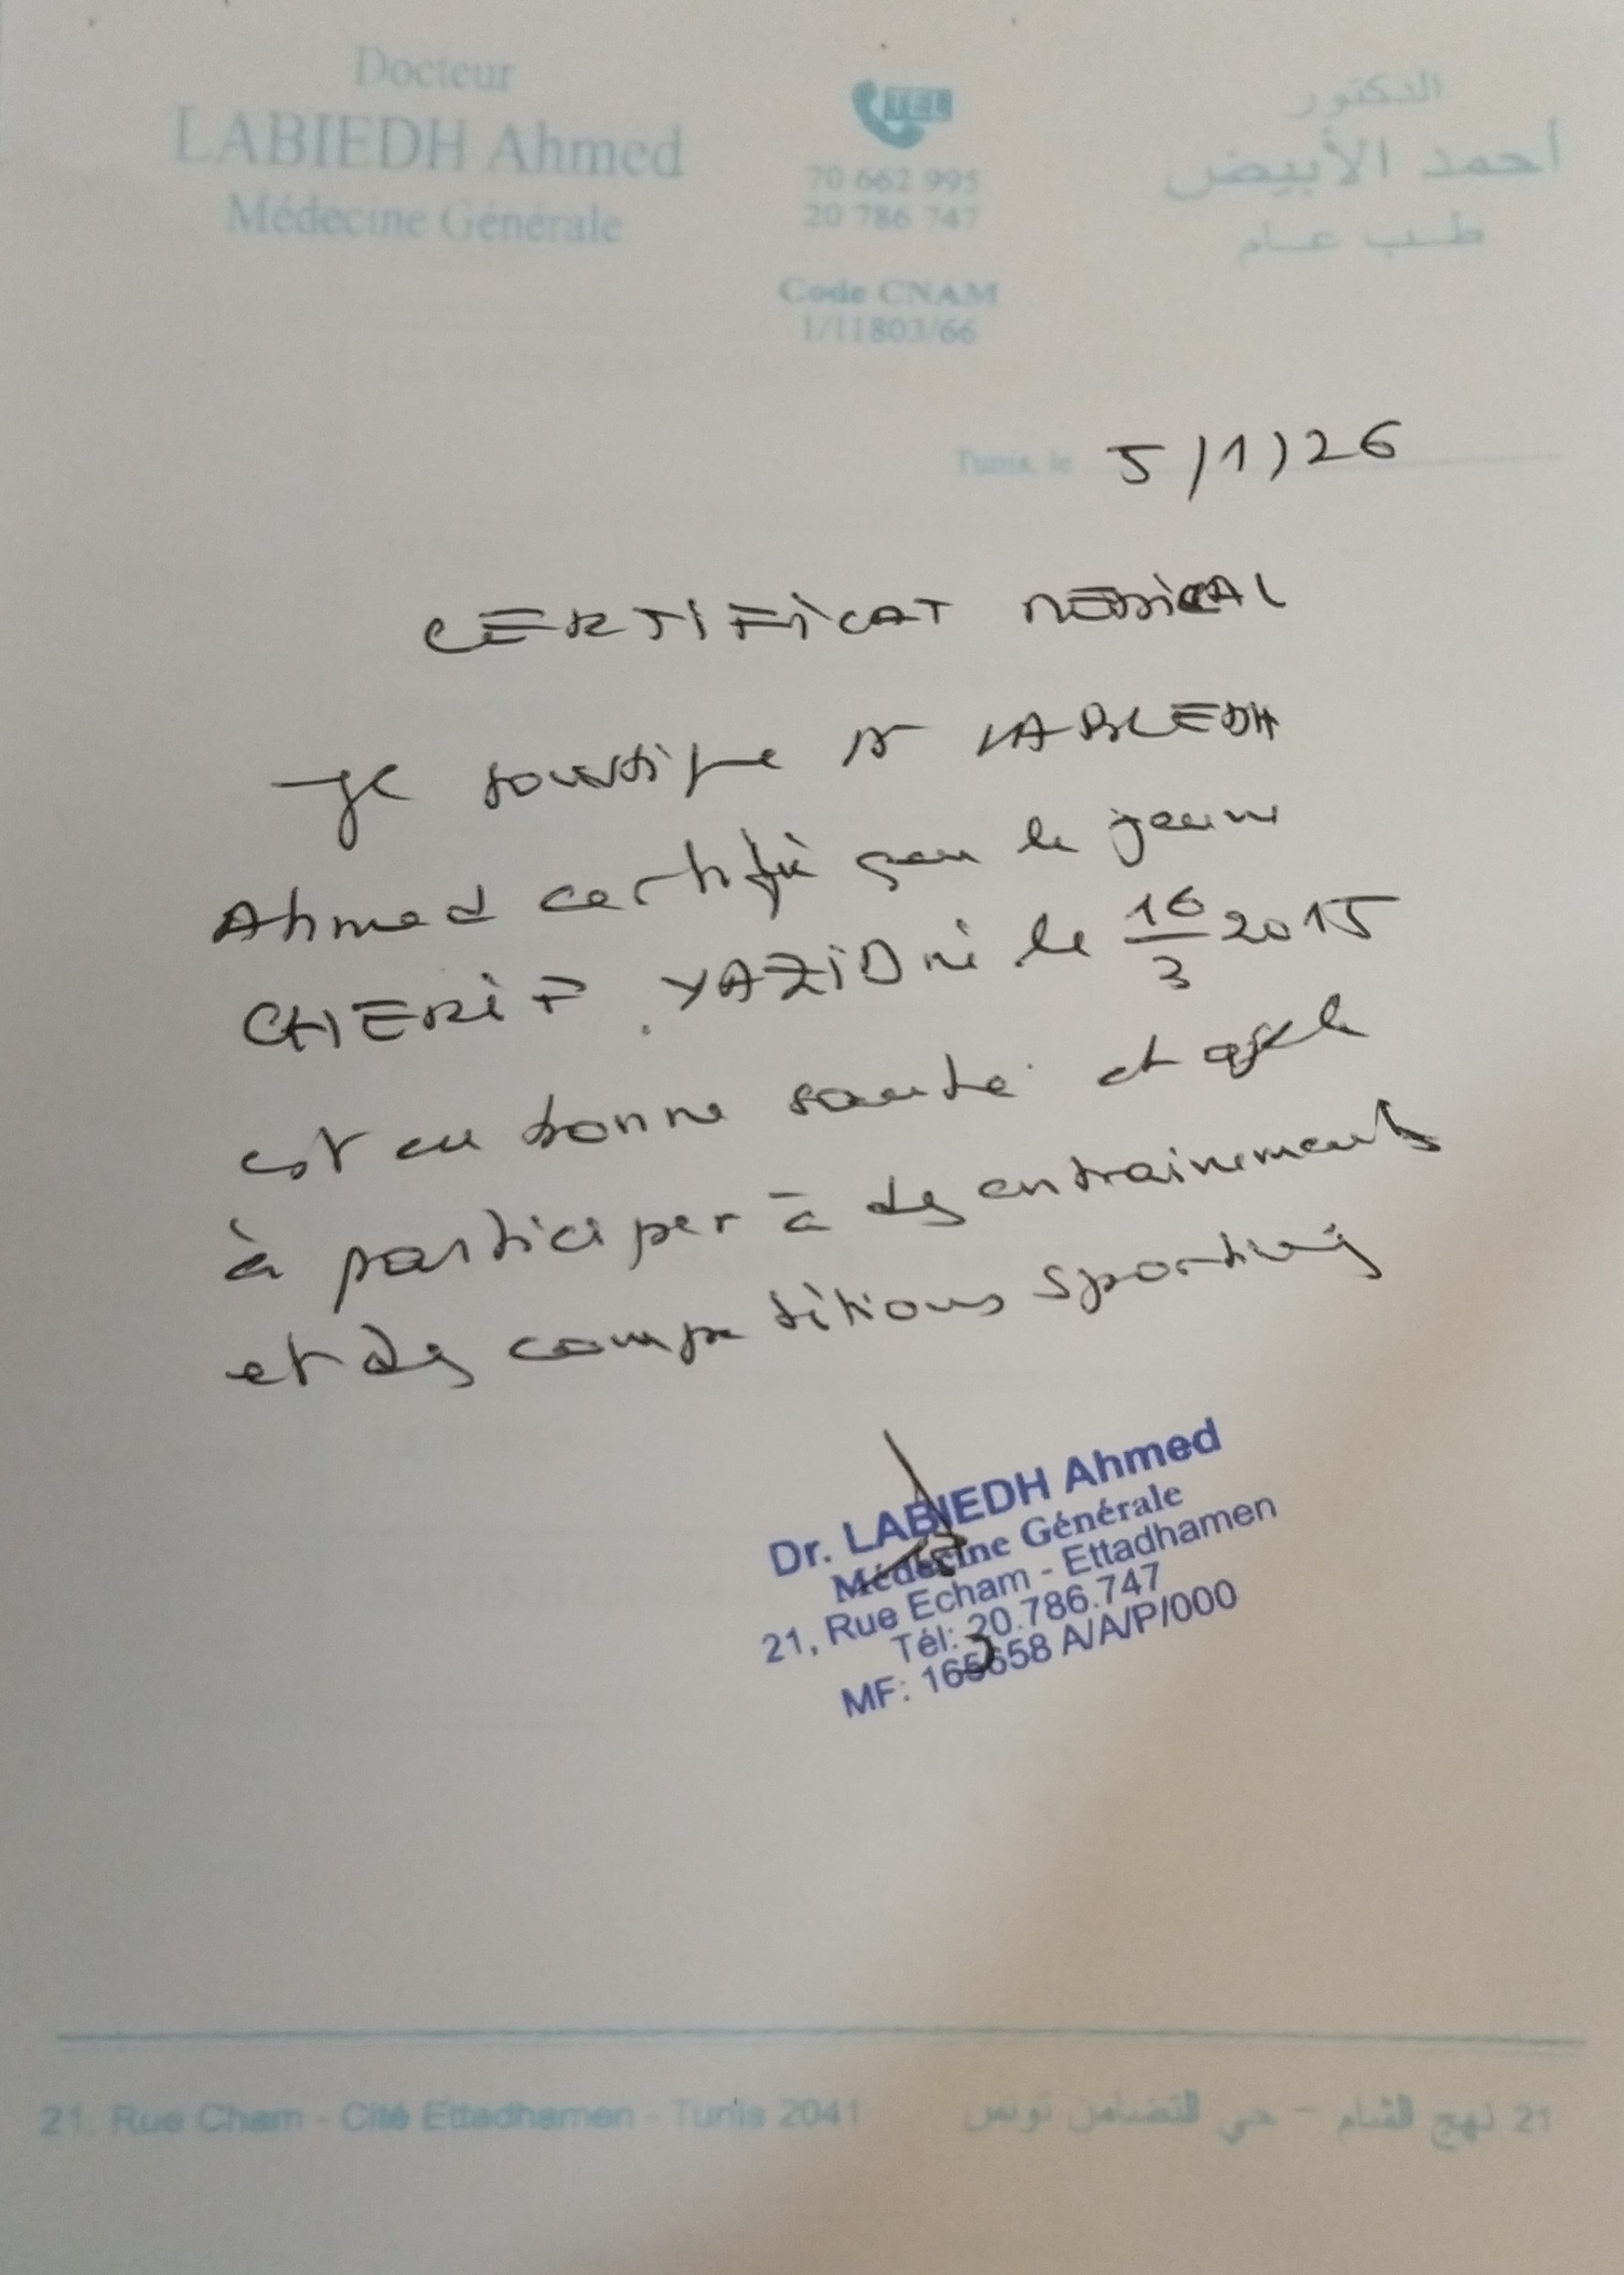 Docteur
LABIEDH Ahmed
Médecine Générale
TEL
70 662 995
20 786 747
Code CNAM
1/11803/66
الدكتور
أحمد الأبيض
طب عام
Tunis, le 5/1/26
CERTIFICAT MEDICAL
Je soussigné Dr LABIEDH
Ahmed certifie que le jeune
CHERIF YAZID né le 16/3 2015
est en bonne santé et apte
à participer à des entrainements
et des compétitions sportives
Dr. LABIEDH Ahmed
Médecine Générale
21, Rue Echam - Ettadhamen
Tél: 20.786.747
MF: 165658 A/A/P/000
21, Rue Cham - Cité Ettadhamen - Tunis 2041
21 نهج الشام - حي التضامن تونس